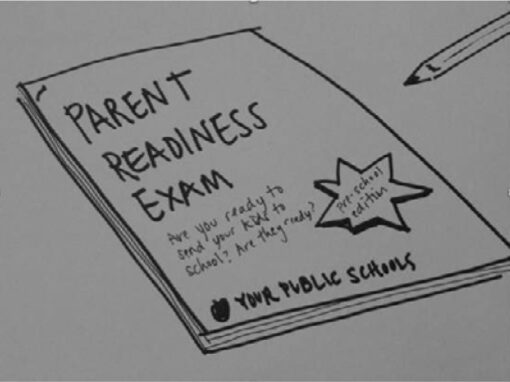 PARENT
READINESS
EXAM
Are you ready to
send your kids to
school? Are they ready?
pre-school
edition
YOUR PUBLIC SCHOOLS